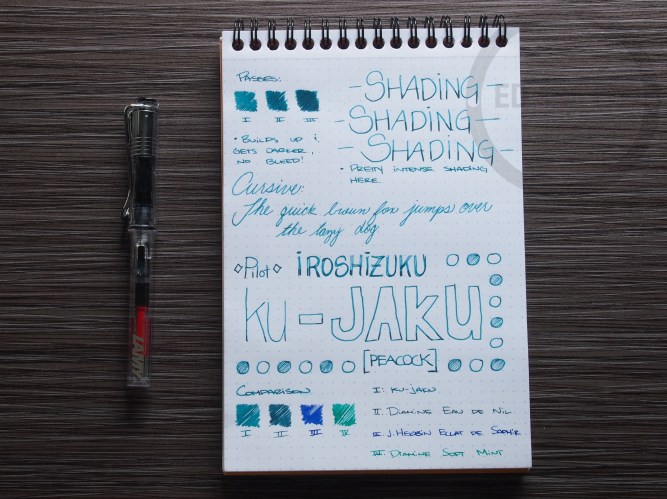 PASSES:
I II III
• BUILDS UP &
GETS DARKER,
NO BLEED!
-SHADING-
-SHADING-
-SHADING-
• PRETTY INTENSE SHADING
HERE.
Cursive:
The quick brown fox jumps over
the lazy dog.
◇Pilot◇ IROSHIZUKU
KU-JAKU
[PEACOCK]
COMPARISON
I II III IV
I: KU-JAKU
II. DIAMINE EAU DE NIL
III. J. HERBIN ECLAT DE SAPHIR
IV. DIAMINE SOFT MINT
LAMY
ED